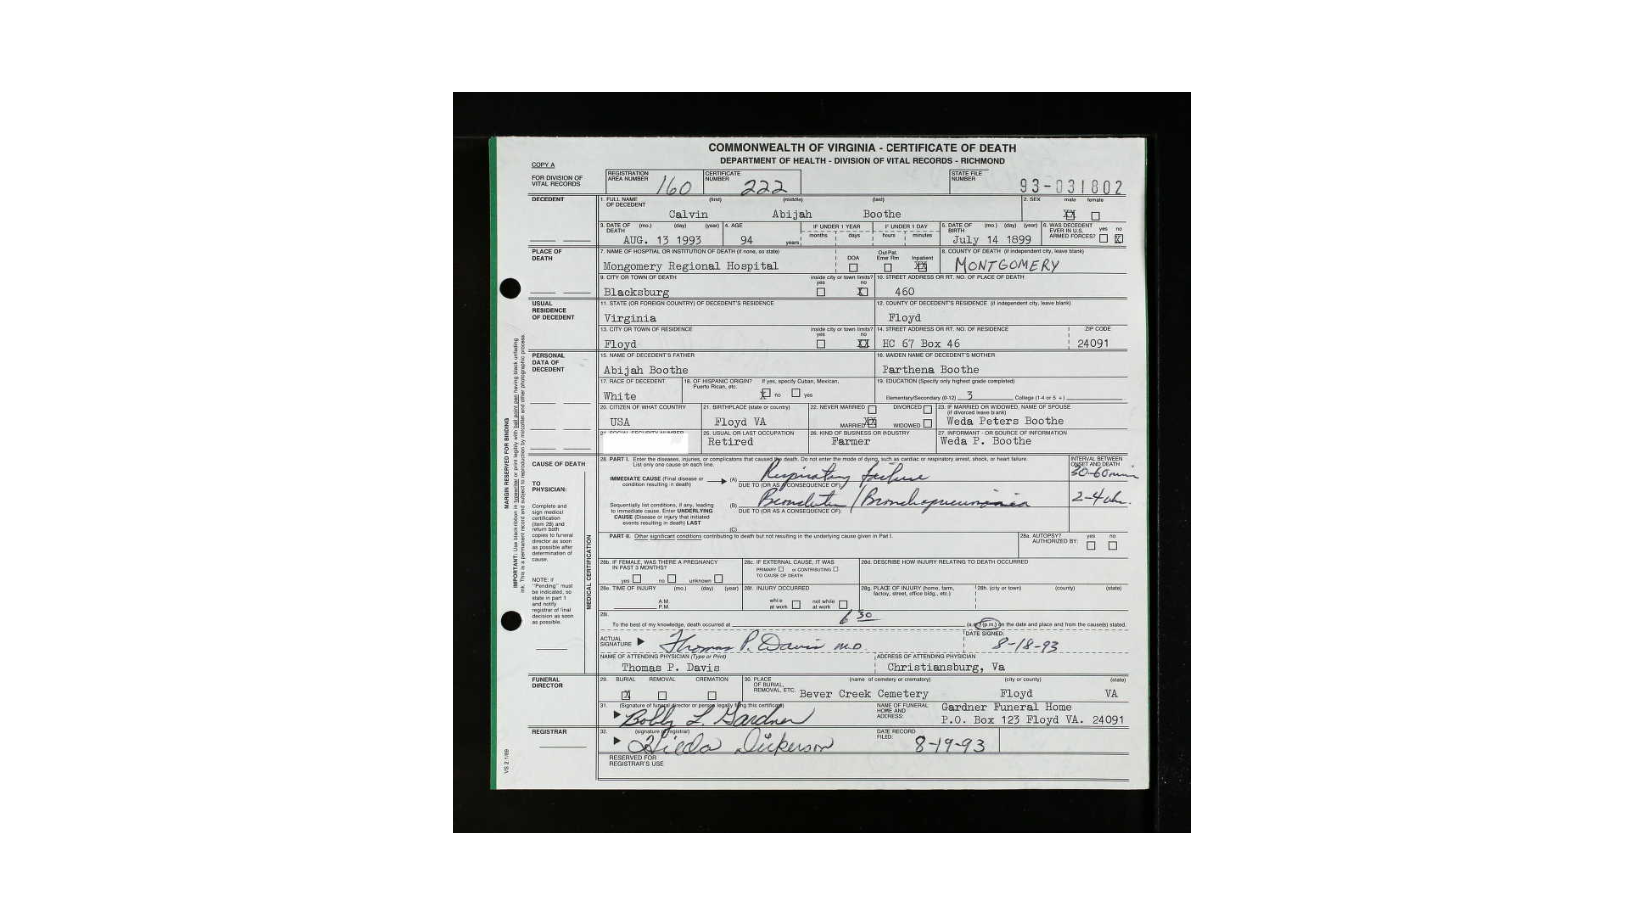 COMMONWEALTH OF VIRGINIA - CERTIFICATE OF DEATH
DEPARTMENT OF HEALTH - DIVISION OF VITAL RECORDS - RICHMOND
COPY A
FOR DIVISION OF VITAL RECORDS
REGISTRATION AREA NUMBER 160 CERTIFICATE NUMBER 222 STATE FILE NUMBER 93-031802
DECEDENT
1. FULL NAME OF DECEDENT (first) (middle) (last) 2. SEX male female
Calvin Abijah Boothe XX
3. DATE OF DEATH (mo.) (day) (year) 4. AGE IF UNDER 1 YEAR IF UNDER 1 DAY 5. DATE OF BIRTH (mo.) (day) (year) 6. WAS DECEDENT EVER IN U.S. ARMED FORCES? yes no
months days hours minutes
AUG. 13 1993 94 years July 14 1899 X
PLACE OF DEATH
7. NAME OF HOSPITAL OR INSTITUTION OF DEATH (if none, so state) DOA Out Pat. Emer Rm Inpatient 8. COUNTY OF DEATH (if independent city, leave blank)
Mongomery Regional Hospital XX MONTGOMERY
9. CITY OR TOWN OF DEATH inside city or town limits? yes no 10. STREET ADDRESS OR RT. NO. OF PLACE OF DEATH
Blacksburg X 460
USUAL RESIDENCE OF DECEDENT
11. STATE (OR FOREIGN COUNTRY) OF DECEDENT'S RESIDENCE 12. COUNTY OF DECEDENT'S RESIDENCE (if independent city, leave blank)
Virginia Floyd
13. CITY OR TOWN OF RESIDENCE inside city or town limits? yes no 14. STREET ADDRESS OR RT. NO. OF RESIDENCE ZIP CODE
Floyd XX HC 67 Box 46 24091
PERSONAL DATA OF DECEDENT
15. NAME OF DECEDENT'S FATHER 16. MAIDEN NAME OF DECEDENT'S MOTHER
Abijah Boothe Parthena Boothe
17. RACE OF DECEDENT 18. OF HISPANIC ORIGIN? If yes, specify Cuban, Mexican, Puerto Rican, etc. 19. EDUCATION (Specify only highest grade completed)
White X no yes Elementary/Secondary (0-12) 3 College (1-4 or 5 +)
20. CITIZEN OF WHAT COUNTRY 21. BIRTHPLACE (state or country) 22. NEVER MARRIED DIVORCED 23. IF MARRIED OR WIDOWED, NAME OF SPOUSE (if divorced leave blank)
USA Floyd VA MARRIED XX WIDOWED Weda Peters Boothe
25. USUAL OR LAST OCCUPATION 26. KIND OF BUSINESS OR INDUSTRY 27. INFORMANT - OR SOURCE OF INFORMATION
Retired Farmer Weda P. Boothe
CAUSE OF DEATH
TO PHYSICIAN:
Complete and sign medical certification (item 28) and return both copies to funeral director as soon as possible after determination of cause.
NOTE: If "Pending" must be indicated, so state in part 1 and notify registrar of final decision as soon as possible.
MEDICAL CERTIFICATION
28. PART I. Enter the diseases, injuries, or complications that caused the death. Do not enter the mode of dying, such as cardiac or respiratory arrest, shock, or heart failure. List only one cause on each line. INTERVAL BETWEEN ONSET AND DEATH
IMMEDIATE CAUSE (Final disease or condition resulting in death) (A) Respiratory failure 30-60 min
DUE TO (OR AS A CONSEQUENCE OF):
Sequentially list conditions, if any, leading to immediate cause. Enter UNDERLYING CAUSE (Disease or injury that initiated events resulting in death) LAST (B) / Bronchopneumonia 2-4
DUE TO (OR AS A CONSEQUENCE OF):
(C)
PART II. Other significant conditions contributing to death but not resulting in the underlying cause given in Part I. 28a. AUTOPSY? AUTHORIZED BY: yes no
28b. IF FEMALE, WAS THERE A PREGNANCY IN PAST 3 MONTHS? yes no unknown 28c. IF EXTERNAL CAUSE, IT WAS PRIMARY or CONTRIBUTING TO CAUSE OF DEATH 28d. DESCRIBE HOW INJURY RELATING TO DEATH OCCURRED
28e. TIME OF INJURY (mo.) (day) (year) A.M. P.M. 28f. INJURY OCCURRED while at work not while at work 28g. PLACE OF INJURY (home, farm, factory, street, office bldg., etc.) 28h. (city or town) (county) (state)
To the best of my knowledge, death occurred at 6 30 (p.m.) on the date and place and from the cause(s) stated.
ACTUAL SIGNATURE Thomas P. Davis M.D. DATE SIGNED: 8-18-93
NAME OF ATTENDING PHYSICIAN (Type or Print) ADDRESS OF ATTENDING PHYSICIAN
Thomas P. Davis Christiansburg, Va
FUNERAL DIRECTOR
29. BURIAL REMOVAL CREMATION 30. PLACE OF BURIAL, REMOVAL, ETC. (name of cemetery or crematory) (city or county) (state)
X Bever Creek Cemetery Floyd VA
31. (Signature of funeral director or person legally filing this certificate) NAME OF FUNERAL HOME AND ADDRESS: Gardner Funeral Home
Bobby L. Gardner P.O. Box 123 Floyd VA. 24091
REGISTRAR
32. (signature of registrar) DATE RECORD FILED:
Hilda Dickerson 8-19-93
RESERVED FOR REGISTRAR'S USE
MARGIN RESERVED FOR BINDING